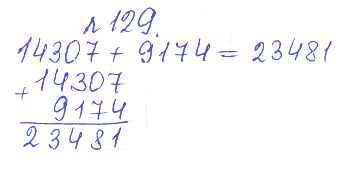 № 129.
14307 + 9174 = 23481
+ 14307
9174
23481